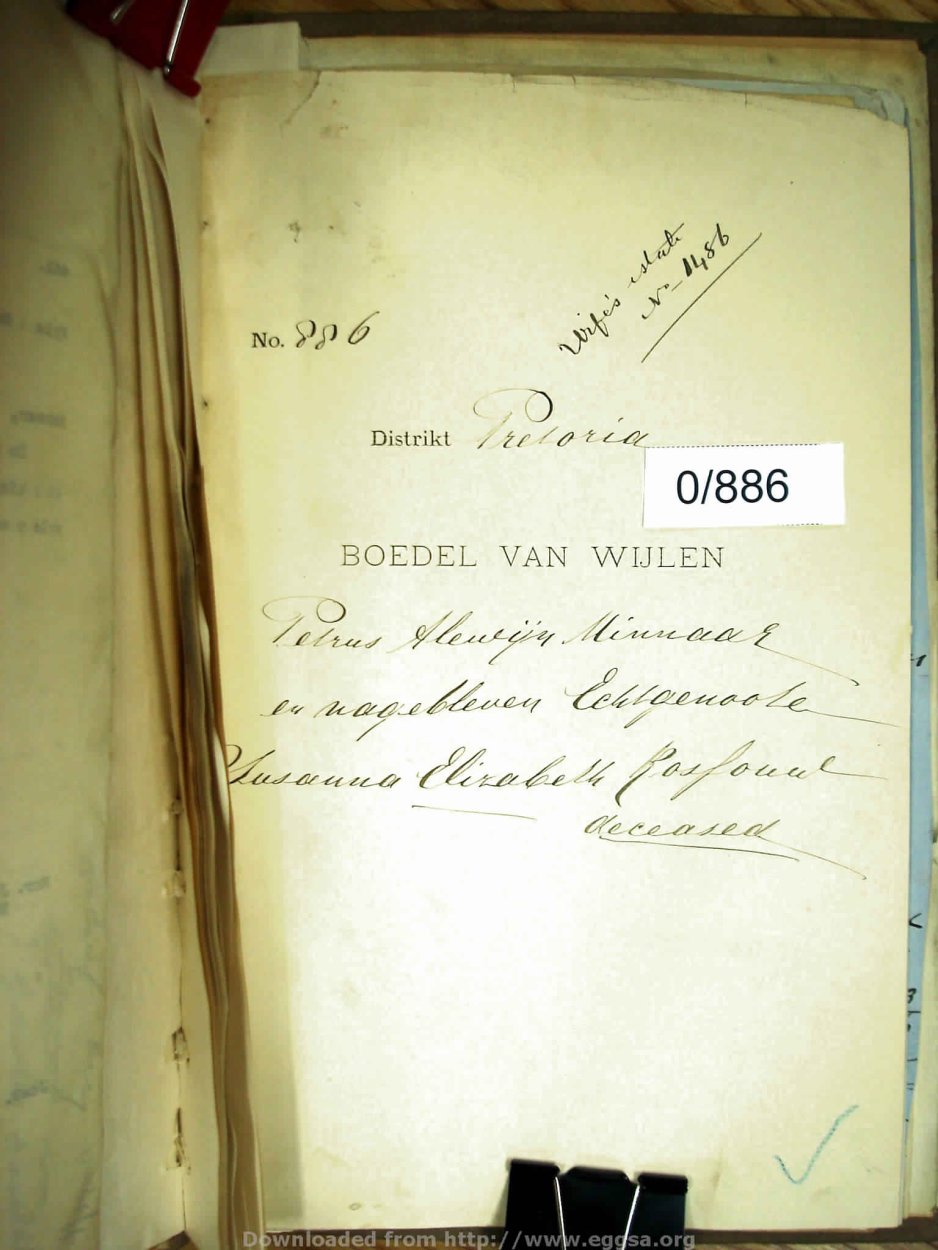 Wife's estate
No 1486
No. 886
Distrikt Pretoria
0/886
BOEDEL VAN WIJLEN
Petrus Alewijn Minnaar
en nagebleven Echtgenoote
Susanna Elizabeth
deceased
Downloaded from http://www.eggsa.org